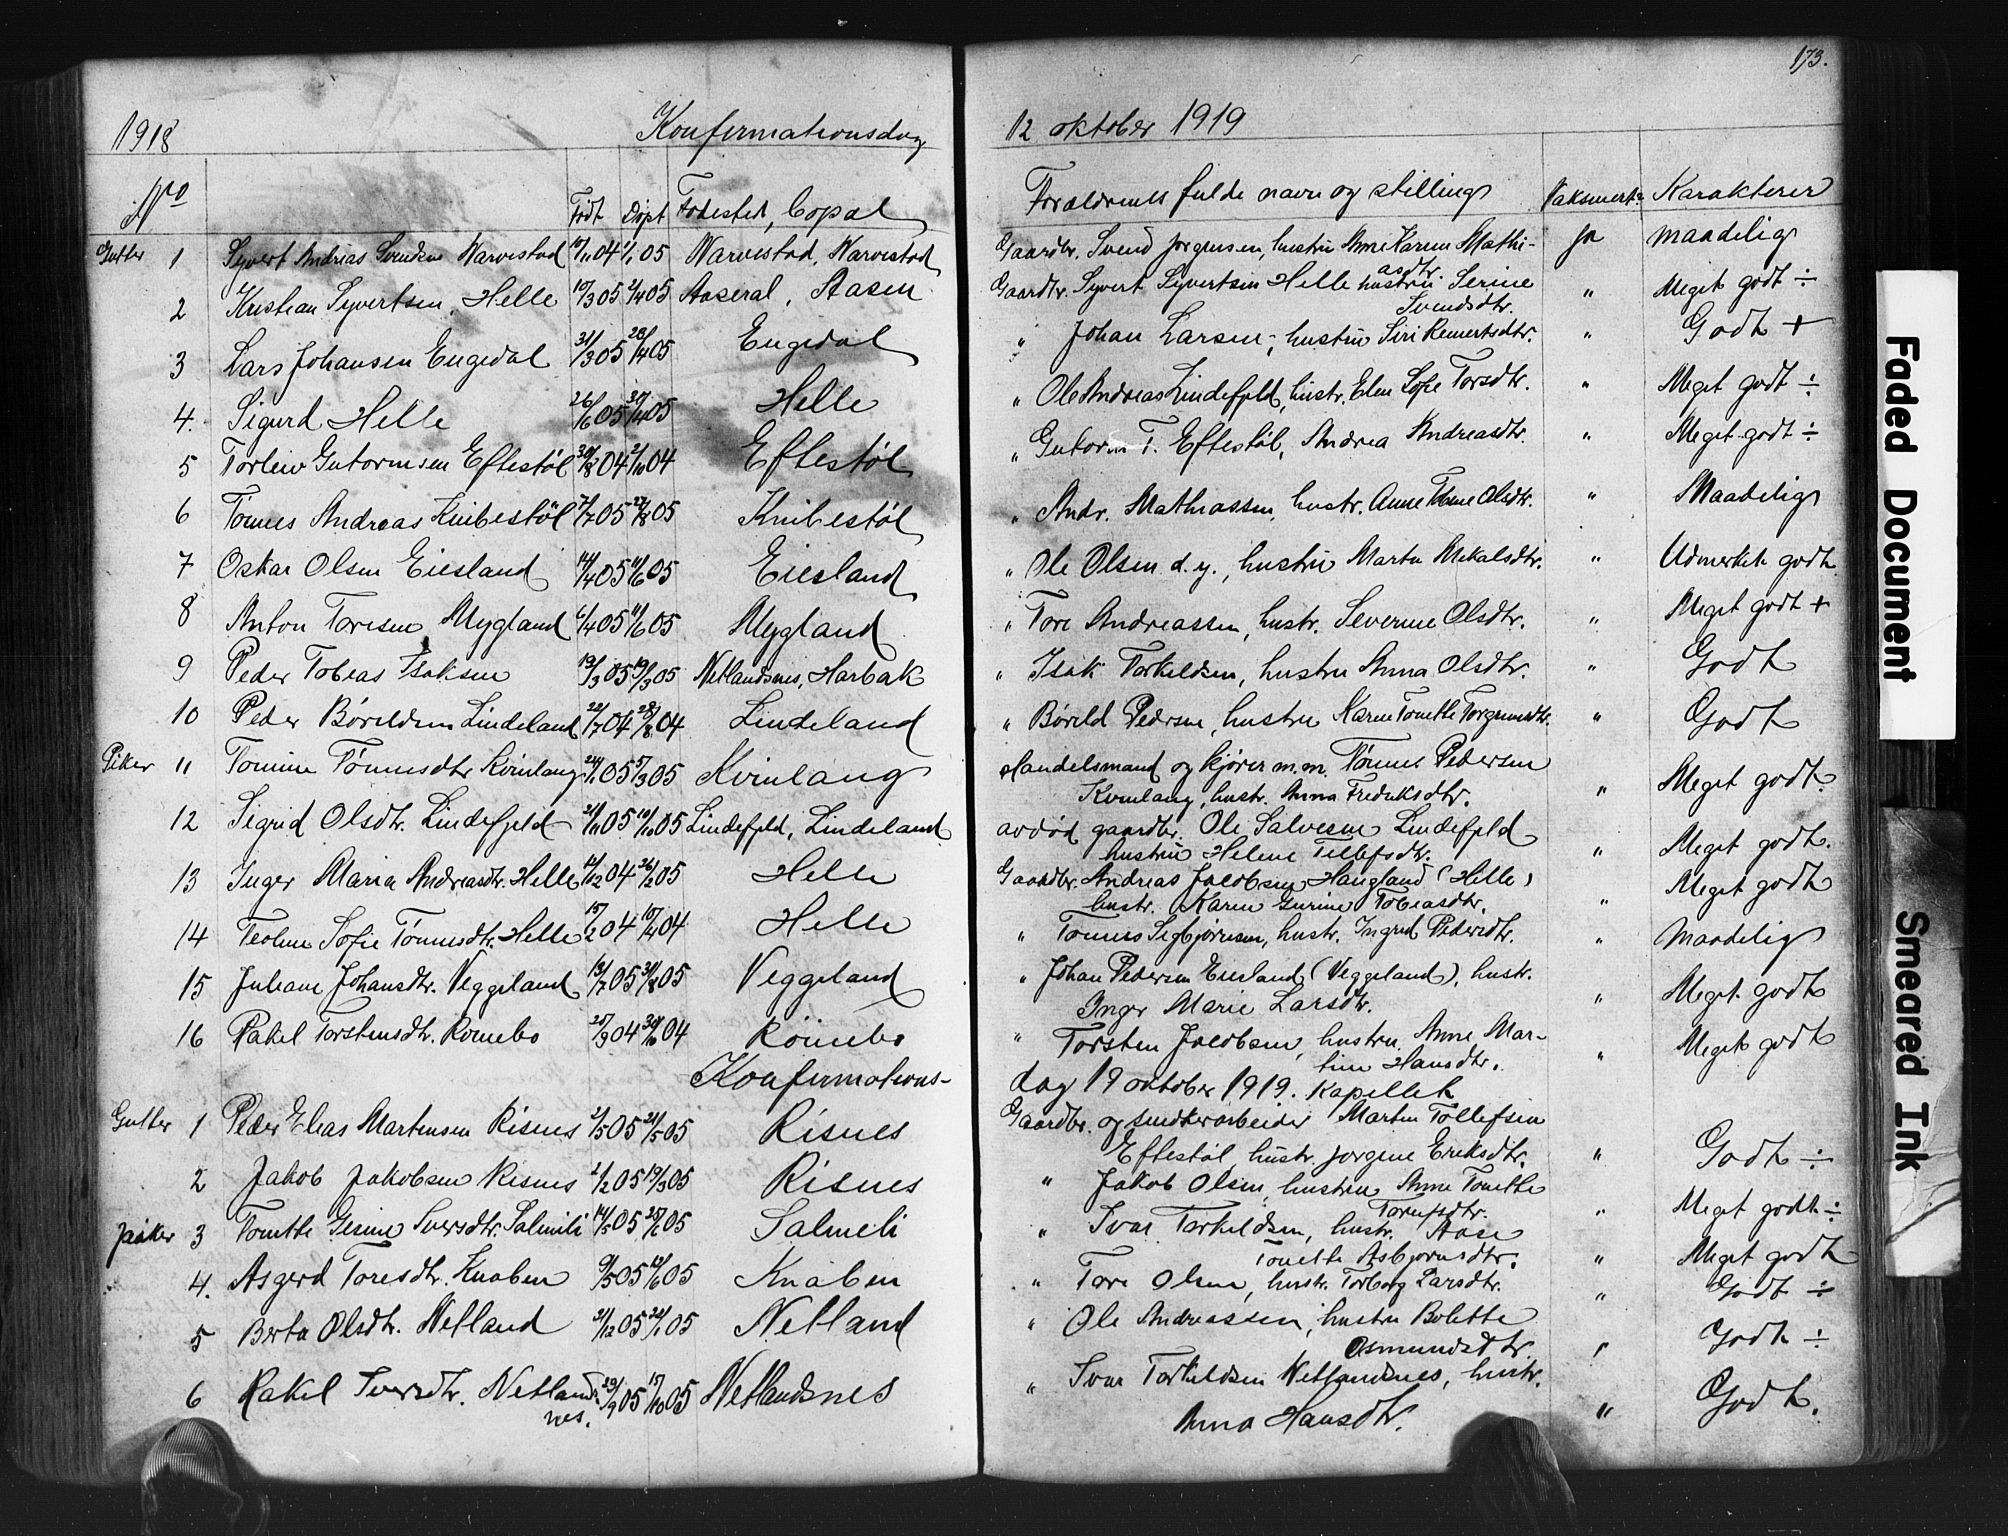 173.
1918 Konfirmationsdag 12 oktober 1919
No Født Døpt Fødested, bopæl Forældrenes fulde navn og stilling Vaksinert Karakterer
Gutter 1 Syvert Andreas Svendsen Warvestad 10/11 04 1/1 05 Warvestad, Warvestad Gaardbr. Svend Jørgensen, hustru Anne Karen Mathi- Ja Maadelig
asdtr.
2 Kristian Syvertsen, Helle 10/3 05 2/4 05 Aaseral, Aasen Gaardbr. Syvert Syvertsen Helle hustru Serine " Meget godt ÷
Svendsdtr.
3 Lars Johansen Engedal 31/3 05 23/4 05 Engedal " Johan Larsen, hustru Siri Remertsdtr. " Godt +
4. Sigurd Helle 26/6 05 05 Helle " Ole Andreas Lindefjeld, hustr. Elen Sofie Torsdtr. " Meget godt ÷
5 Torleiv Gutormsen Eftestøl 30/8 04 2/10 04 Eftestøl " Gutorm T. Eftestøl, Andrea Andreasdtr. " Meget godt ÷
6 Tønnes Andreas Knibestøl 7/7 05 27/8 05 Knibestøl " Andr. Mathiassen, hustr. Anne Tobine Olsdtr. " Maadelig
7 Oskar Olsen Eiesland 14/4 05 11/6 05 Eiesland " Ole Olsen d. y., hustru Marta Mikalsdtr. " Udmerket godt
8 Anton Toresen Mygland 6/4 05 11/6 05 Mygland " Tore Andreassen, hustr. Severine Olsdtr. " Meget godt +
9 Peder Tobias Isaksen 13/3 05 19/3 05 Netlandsnes, Harbak " Isak Torkildsen, hustru Anna Olsdtr. " Godt
10 Peder Børildsen Lindeland 22/7 04 28/8 04 Lindeland " Børild Pedersen, hustru Karen Tonette Torgrimsdtr. " Godt
Piker 11 Tomine Tønnesdtr Kvinlaug 24/1 05 5/3 05 Kvinlaug Handelsmand og kjører m.m. Tønnes Pedersen
Kvinlaug, hustr. Anna Fredriksdtr. " Meget godt.
12 Sigrid Olsdtr. Lindefjeld 21/11 05 10/10 05 Lindefjeld, Lindeland avdød gaardbr. Ole Salvesen Lindefjeld
hustru Helene Tellefsdtr. " Meget godt.
13 Inger Maria Andreasdtr. Helle 12/12 04 26/2 05 Helle Gaardbr. Andreas Jacobsen Haugland (Helle) Meget godt
hustr. Karen Gurine Tobiasdtr. "
14 Teoline Sofie Tønnesdtr. Helle 15/2 04 10/4 04 Helle " Tønnes Sigbjørnsen, hustr. Ingrid Pedersdtr. " Maadelig
15 Juliane Johansdtr. Veggeland 13/7 05 05 Veggeland " Johan Pedersen Eiesland (Veggeland), hustr.
Inger Marie Larsdtr. " Meget godt
16 Rakel Torstensdtr. Romebo 25/9 04 30/10 04 Römebo " Torsten Jacobsen, hustru Anne Mar-
tine Hansdtr. " Meget godt
Konfirmations- dag 19 oktober 1919. Kapellet
Gutter 1 Peder Elias Martensen Risnes 2/5 05 21/5 05 Risnes Gaardbr. og snedkerarbeider Marten Tollefsen
Eftestøl, hustr. Jørgine Eriksdtr. " Godt ÷
2 Jakob Jakobsen Risnes 2/2 05 19/3 05 Risnes " Jakob Olsen, hustru Anne Tonette
Torufsdtr. " Meget godt ÷
piker 3 Tonette Gesine Iversdtr. Salmeli 14/5 05 05 Salmeli " Ivar Torkildsen, hustr. Aase
Tonette Asbjørnsdtr. " Meget godt
4. Asgerd Toresdtr. Knaben 9/5 05 12/6 05 Knaben " Tore Olsen, hustr. Torborg Larsdtr. " Godt ÷
5 Berta Olsdtr. Netland 31/12 05 22/1 05 Netland " Ole Andreassen, hustru Bolette
Osmundsdtr. " Godt ÷
6 Rakel Iversdtr. Netlands- 23/9 05 15/10 05 Netlandsnes " Ivar Torkildsen Netlandsnes, hustr.
nes. Anna Hansdtr. " Godt.
Faded Document
Smeared Ink